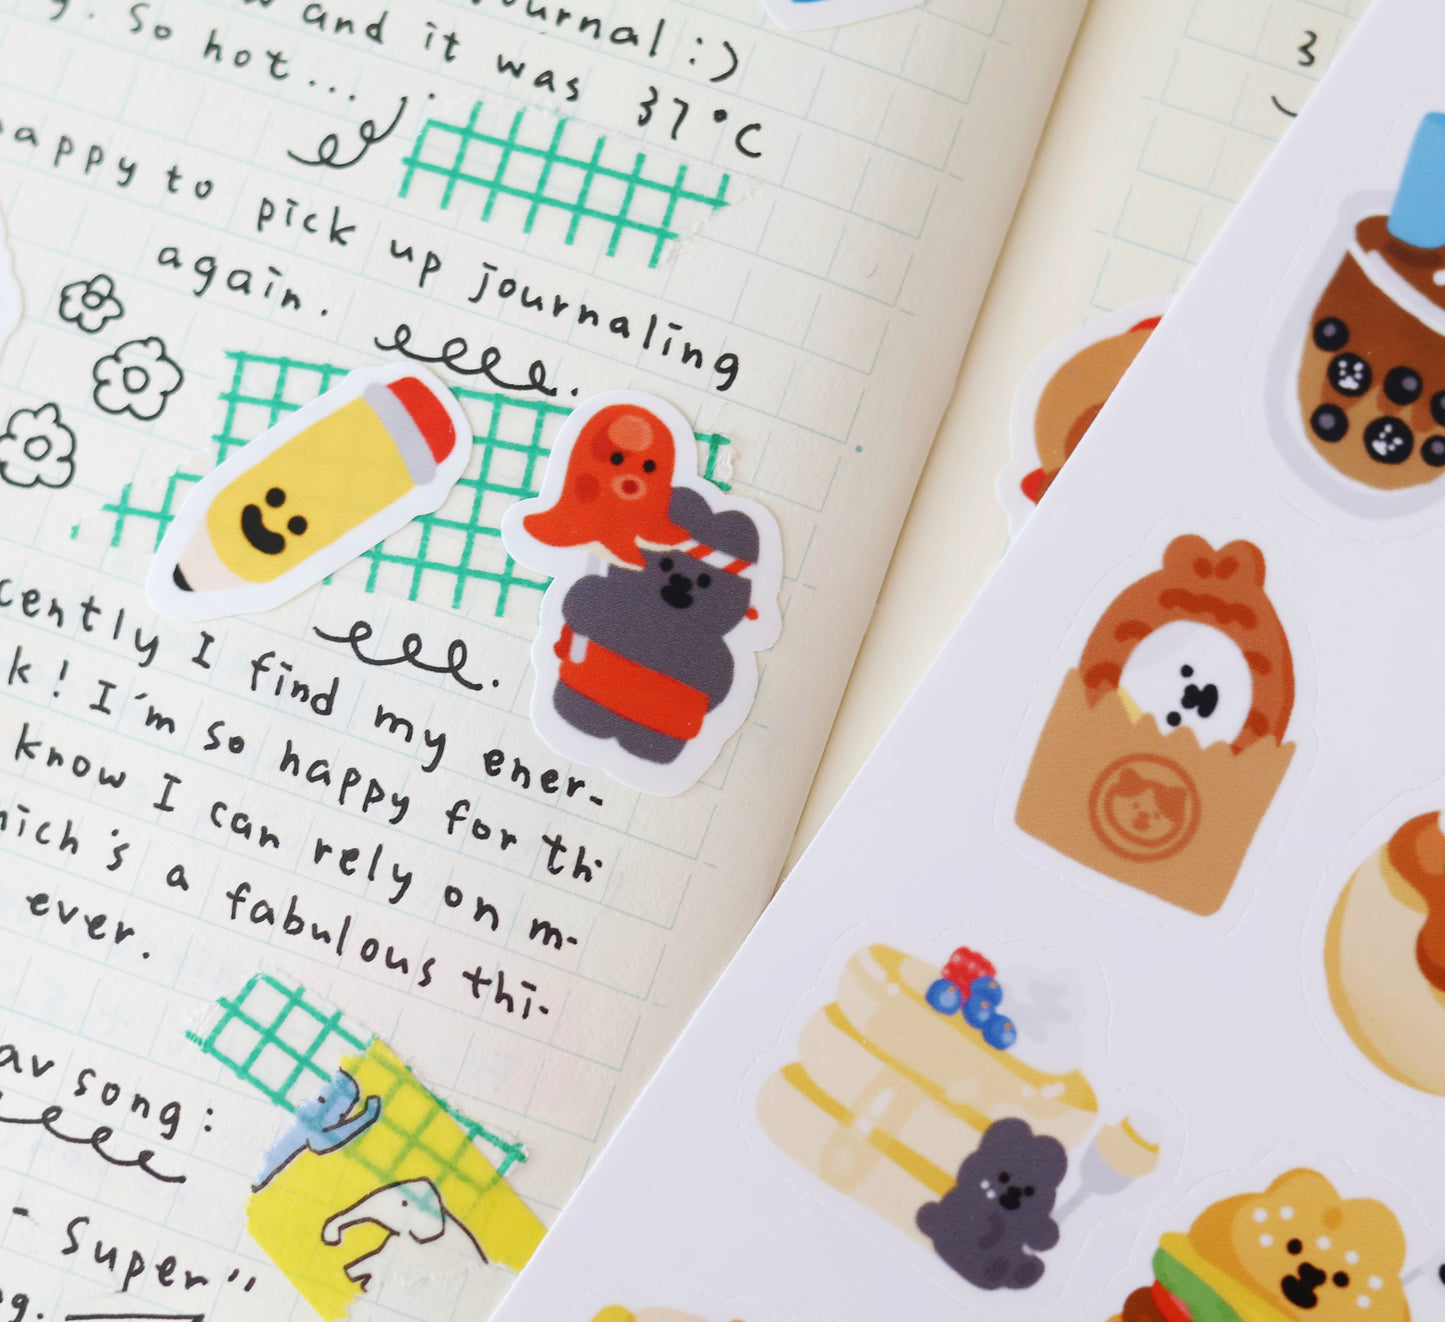 journal :)
and it was 37°C
. So hot...
happy to pick up journaling
again.
I find my ener-
k! I'm so happy for
know I can rely on
a fabulous
ever.
song:
- Super"
3